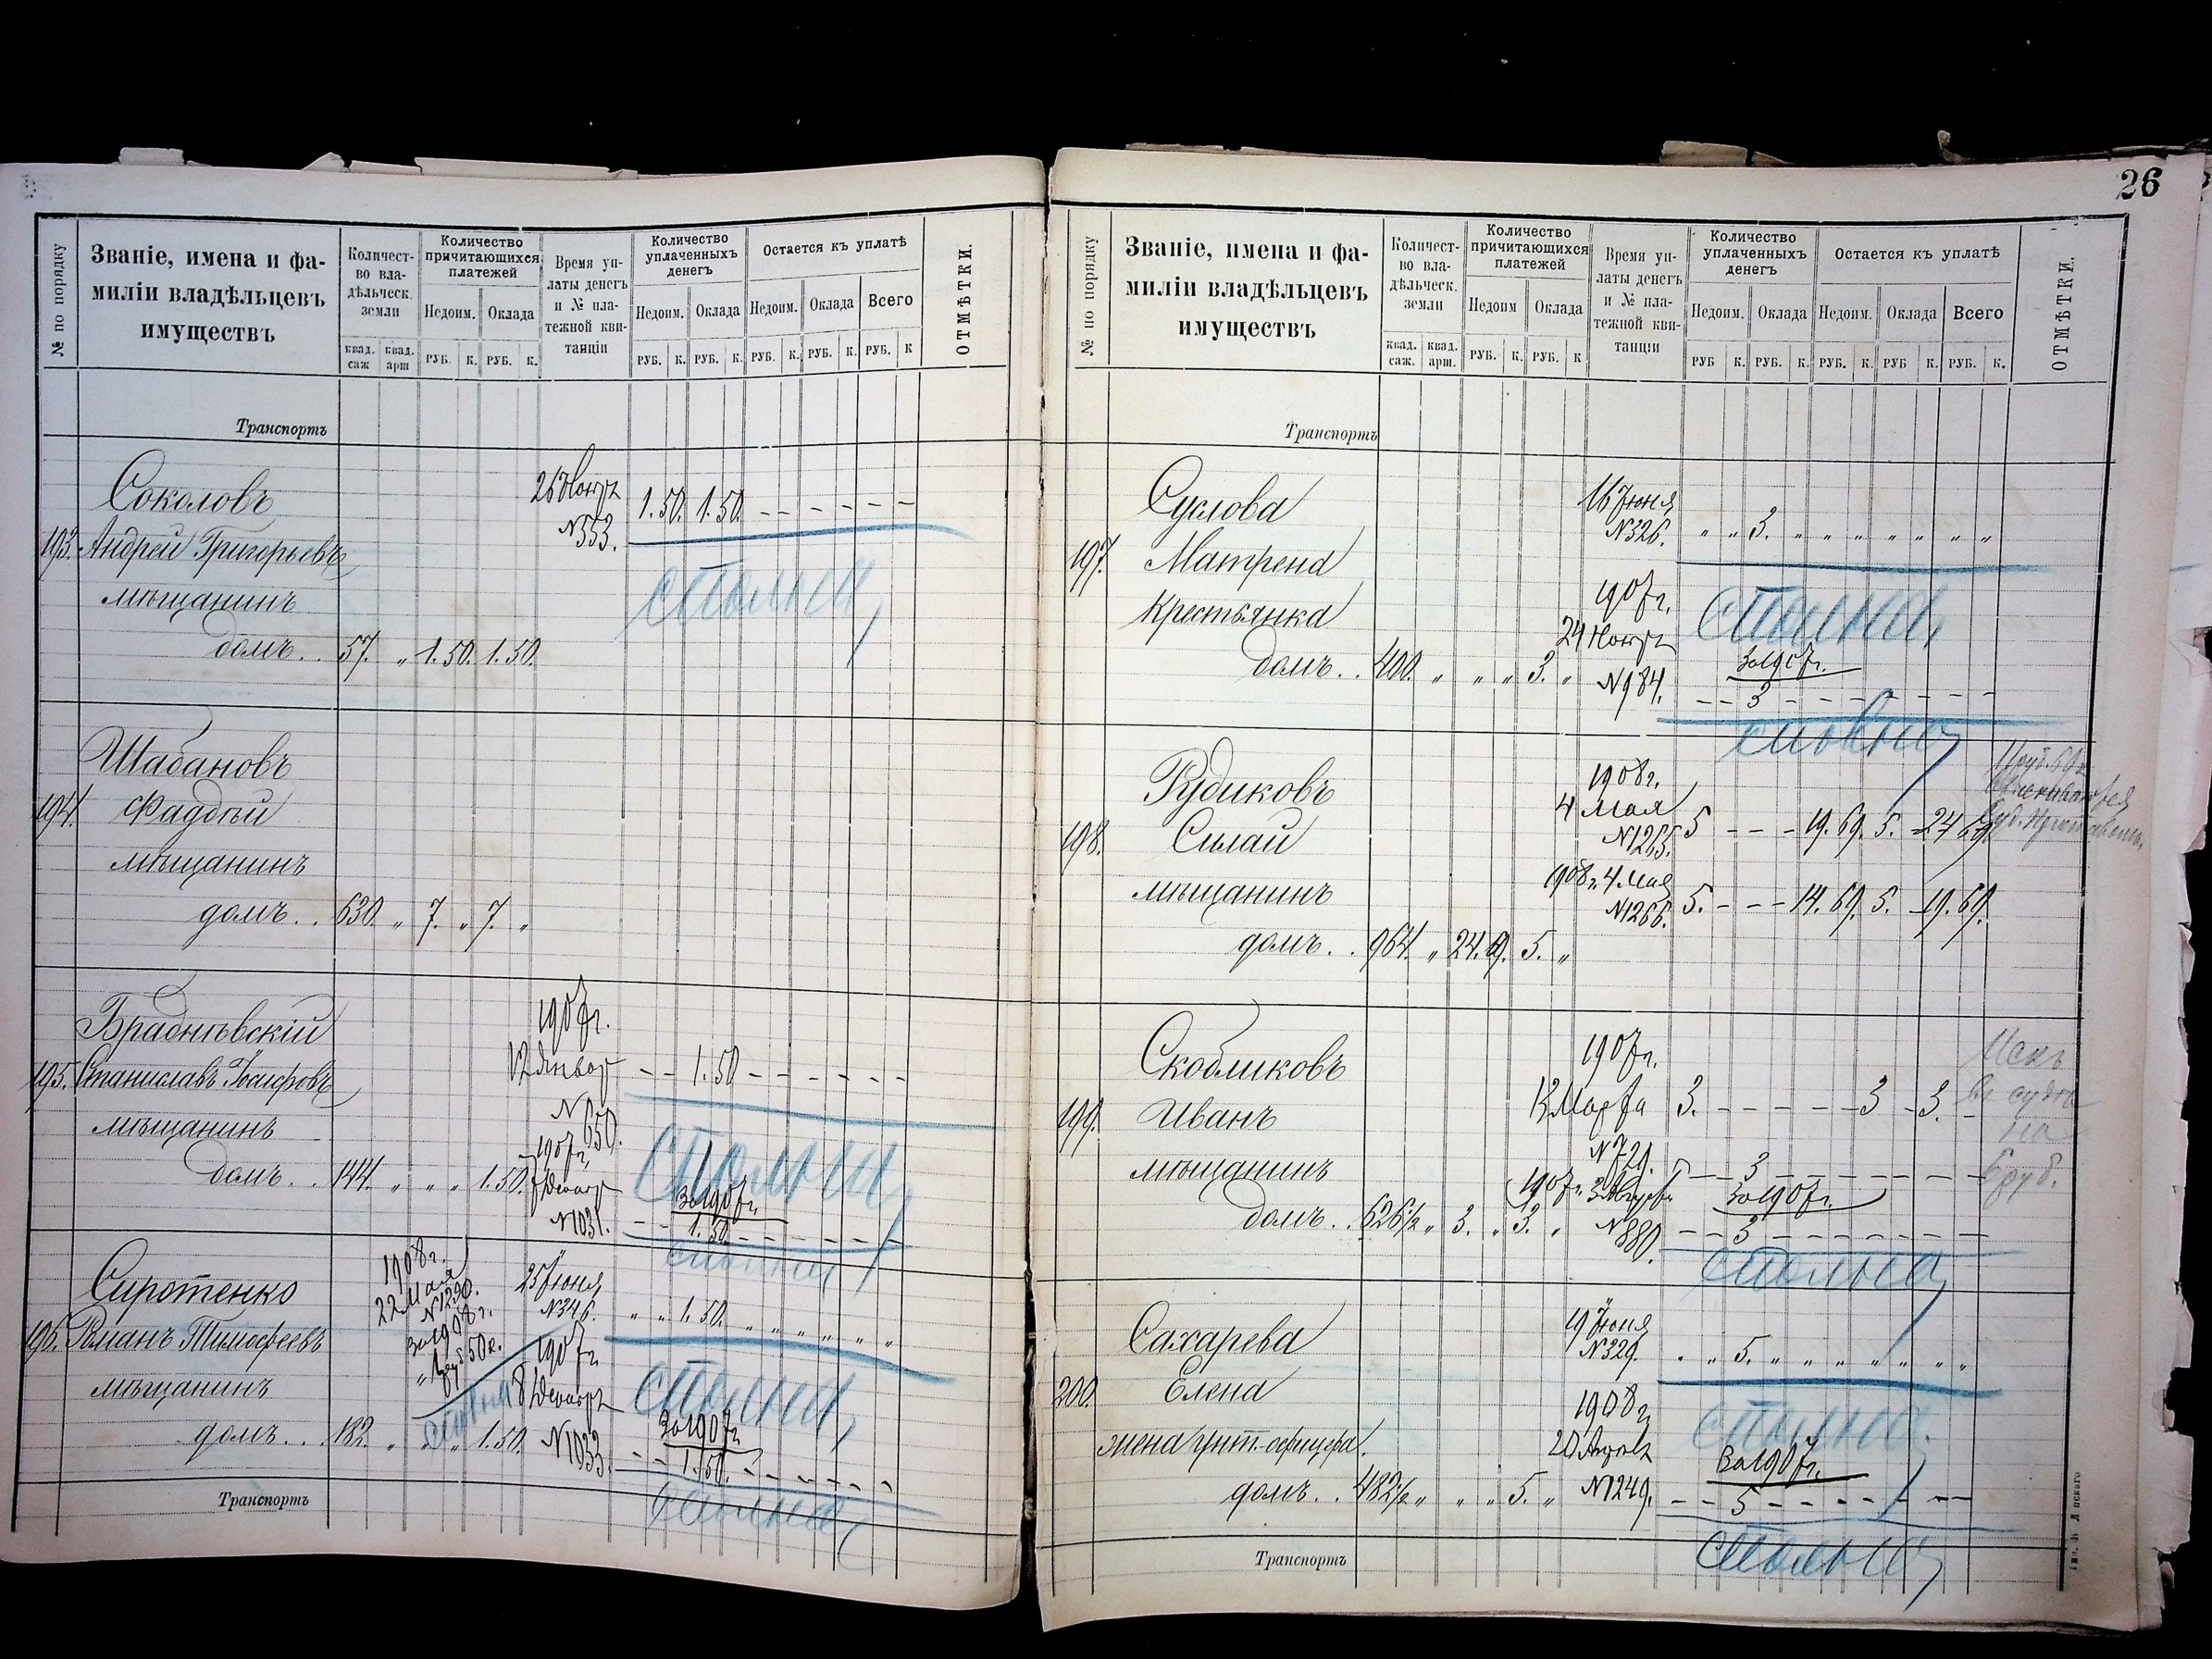 № по порядку
Званіе, имена и фа-
миліи владѣльцевъ
имуществъ
Количест-
во вла-
дѣльческ.
земли
квад. саж квад. арш
Количество
причитающихся
платежей
Недоим. Оклада
РУБ. К. РУБ. К.
Время уп-
латы денегъ
и № пла-
тежной кви-
танціи
Количество
уплаченныхъ
денегъ
Недоим. Оклада
РУБ. К. РУБ. К.
Остается къ уплатѣ
Недоим. Оклада Всего
РУБ. К. РУБ. К. РУБ. К
ОТМѢТКИ.
Транспортъ
Соколовъ
193. Андрей Григорьевъ
мѣщанинъ
домъ.. 57. „ 1.50. 1.50.
26 Ноября
№ 553.
1.50. 1.50. - - - - - -
Шабановъ
194. Фадѣй
мѣщанинъ
домъ.. 630. „ 7. „ 7. „
195. Станиславъ Іосифовъ
мѣщанинъ
домъ.. 144. „ „ „ 1.50.
1907г.
12 Январ
№ 650.
- - 1.50 - - - - - -
1907г.
7 Декабр
№ 1031.
За 1907г.
- - 1.50. - - - - - -
Сиротенко
196. Романъ Тимофеевъ
мѣщанинъ
домъ... 182. „ „ „ 1.50.
1908г.
22 Мая
№ 1290.
за 1908г.
„ 1 руб 50 к.
25 Іюня
№ 346.
„ „ 1.50. „ „ „ „ „ „
1907г.
8 Декабря
№ 1033.
За 1907г.
- - 1.50. - - - - - -
Транспортъ
26
№ по порядку
Званіе, имена и фа-
миліи владѣльцевъ
имуществъ
Количест-
во вла-
дѣльческ.
земли
квад. саж. квад. арш.
Количество
причитающихся
платежей
Недоим Оклада
РУБ. К. РУБ. К
Время уп-
латы денегъ
и № пла-
тежной кви-
танціи
Количество
уплаченныхъ
денегъ
Недоим. Оклада
РУБ К. РУБ. К.
Остается къ уплатѣ
Недоим. Оклада Всего
РУБ. К. РУБ К. РУБ. К.
ОТМѢТКИ.
Транспортъ
Суслова
197. Матрена
крестьянка
домъ.. 400. „ „ „ 3. „
16 Іюня
№ 326.
„ „ 3. „ „ „ „ „ „ „
1907г.
24 Ноября
№ 984.
За 1907г.
- - 3 - - - - - - -
Рудиковъ
198. Силай
мѣщанинъ
домъ.. 964. „ 24.69. 5. „
1908г.
4 Мая
№ 1265.
5 - - - 19.69. 5. - 24 69.
1908г. 4 Мая
№ 1266.
5. - - - 14.69. 5. - 19.69.
Скобликовъ
199. Иванъ
мѣщанинъ
домъ.. 626½ „ 3. „ 3. „
1907г.
13 Марта
№ 729.
3. - - - - - 3 - 3. -
- - 3 - - - - - - -
1907г. 3 Август
№ 880.
За 1907г.
- - 3 - - - - - - -
Искъ
въ судѣ
на
6 руб.
Сахарева
200. Елена
жена унт.-офицера.
домъ.. 482½ „ „ „ 5. „
19 Іюня
№ 329.
„ „ 5. „ „ „ „ „ „ „
1908г.
20 Апрѣля
№ 1249.
За 1907г.
- - 5 - - - - - - -
Транспортъ